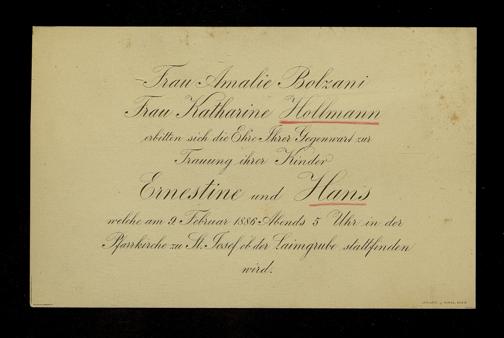 Frau Amalie Bolzani
Frau Katharine Hollmann
erbitten sich die Ehre Ihrer Gegenwart zur
Trauung ihrer Kinder
Ernestine und Hans
welche am 9. Februar 1886 Abends 5 Uhr in der
Pfarrkirche zu St. Josef ob der Laimgrube stattfinden
wird.